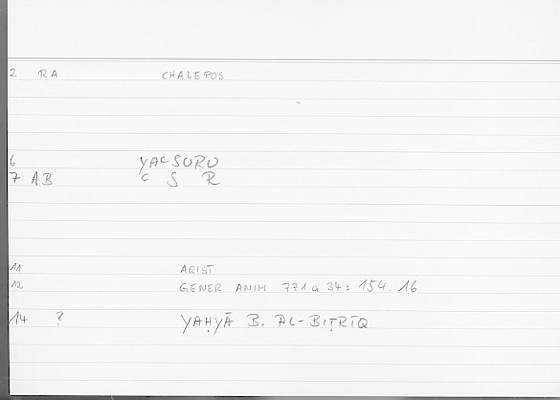 2 RA CHALEPOS
6 YACSURU
7 AB C S R
11 ARIST
12 GENER ANIM 771a34: 154.16
14 ? YAḤYĀ B. AL-BIṬRĪQ